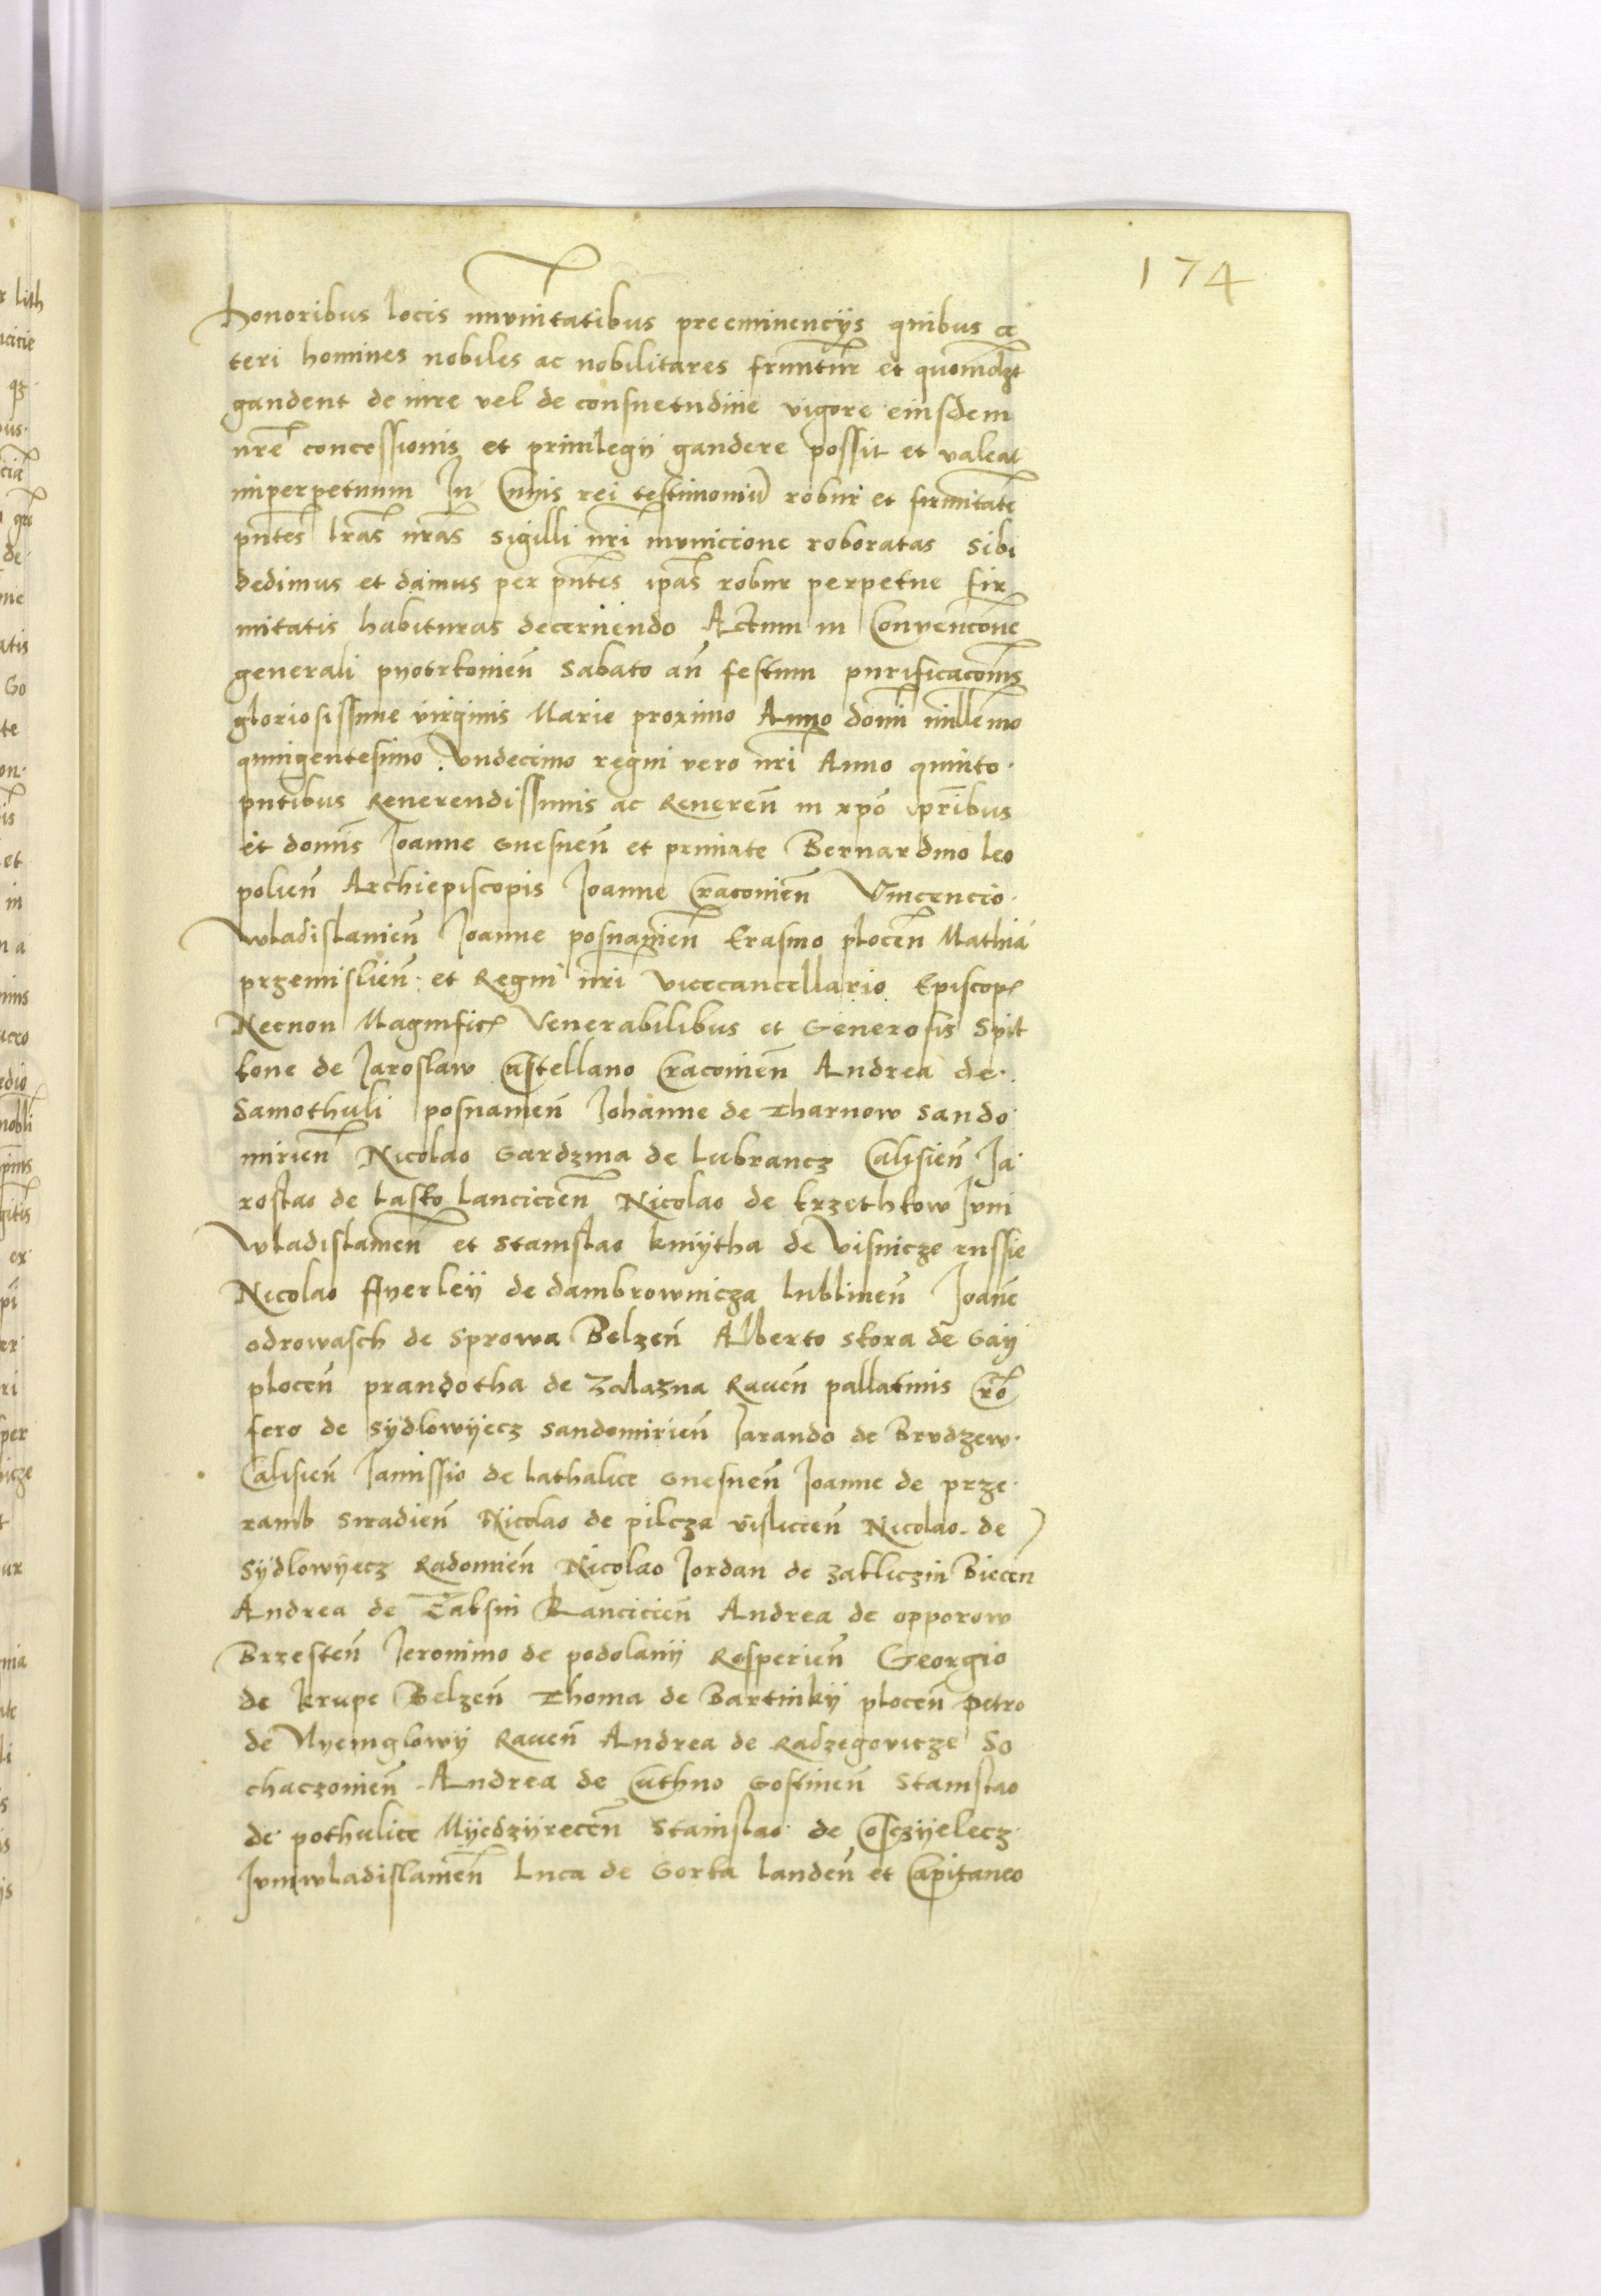 174
honoribus locis imunitatibus preeminencijs quibus ce
teri homines nobiles ac nobilitares fruuntur et quomdzt
gaudent de iure vel de consuetudine vigore eiusdem
nrē concessionis et priuilegij gaudere possit et valeat
imperpetuum In Cuius rei testimoniū robur et firmitatē
pn̄tes lrās nrās sigilli nrī municione roboratas sibi
dedimus et damus per pn̄tes ipās robur perpetue fir
mitatis habituras decernendo Actum in Convencōne
generali pyotrkonien̄ Sabato an̄ festum purificacōnis
gloriosissime virginis Marie proximo Anno domī millēmo
quingentesimo Vndecimo regni vero nrī Anno quinto
pn̄tibus Reuerendissimis ac Reueren̄ in xp̄o pr̄ibus
et domīs Joanne Gnesnen̄ et primate Bernardino leo
polien̄ Archiepiscopis Joanne Cracouien̄ Vincencio
Wladislauien̄ Joanne posnanien̄ Erasmo plocen̄ Mathia
przemislien̄ et Regni nrī vicecancellario Episcop
Necnon Magnific Venerabilibus et Generosis Spit
kone de Jaroslaw Castellano Cracouien̄ Andrea de
Samothuli posnanien̄ Johanne de Tharnow Sando
mirien̄ Nicolao Gardzina de Lubrancz Calisien̄ Ja
roslao de Lasko Lancicien̄ Nicolao de krzethkow Juni
Wladislauien̄ et Stanislao kmijtha de Visnicze russie
Nicolao ffyrley de dambrownicza lublinen̄ Joanē
odrowasch de Sprowa Belzen̄ Alberto skora de Gaij
plocen̄ prandotha de Zalazna Rauen̄ pallatinis Cro
fero de Sydlowijecz Sandomirien̄ Jarando de Brudzew
Calisien̄ Janissio de lathalice Gnesnen̄ Joanne de prze
ramb Siradien̄ Nicolao de pilcza vislicien̄ Nicolao de
Sydlowijecz Radomien̄ Nicolao Jordan de zakliczin Biecen
Andrea de Taksin Lancicien̄ Andrea de opporow
Brzesten̄ Jeronimo de podolanij Rosperien̄ Georgio
de krupe Belzen̄ Thoma de Bartinkij plocen̄ petro
de Nyemglowij Rauen̄ Andrea de Radzegovicze So
chaczouien̄ Andrea de Cuthno Gostinen̄ Stanislao
de pothulice Myedzijrecen̄ Stanislao de Cosczijelecz
Juniwladislauien̄ Luca de Gorka Landen̄ et Capitaneo